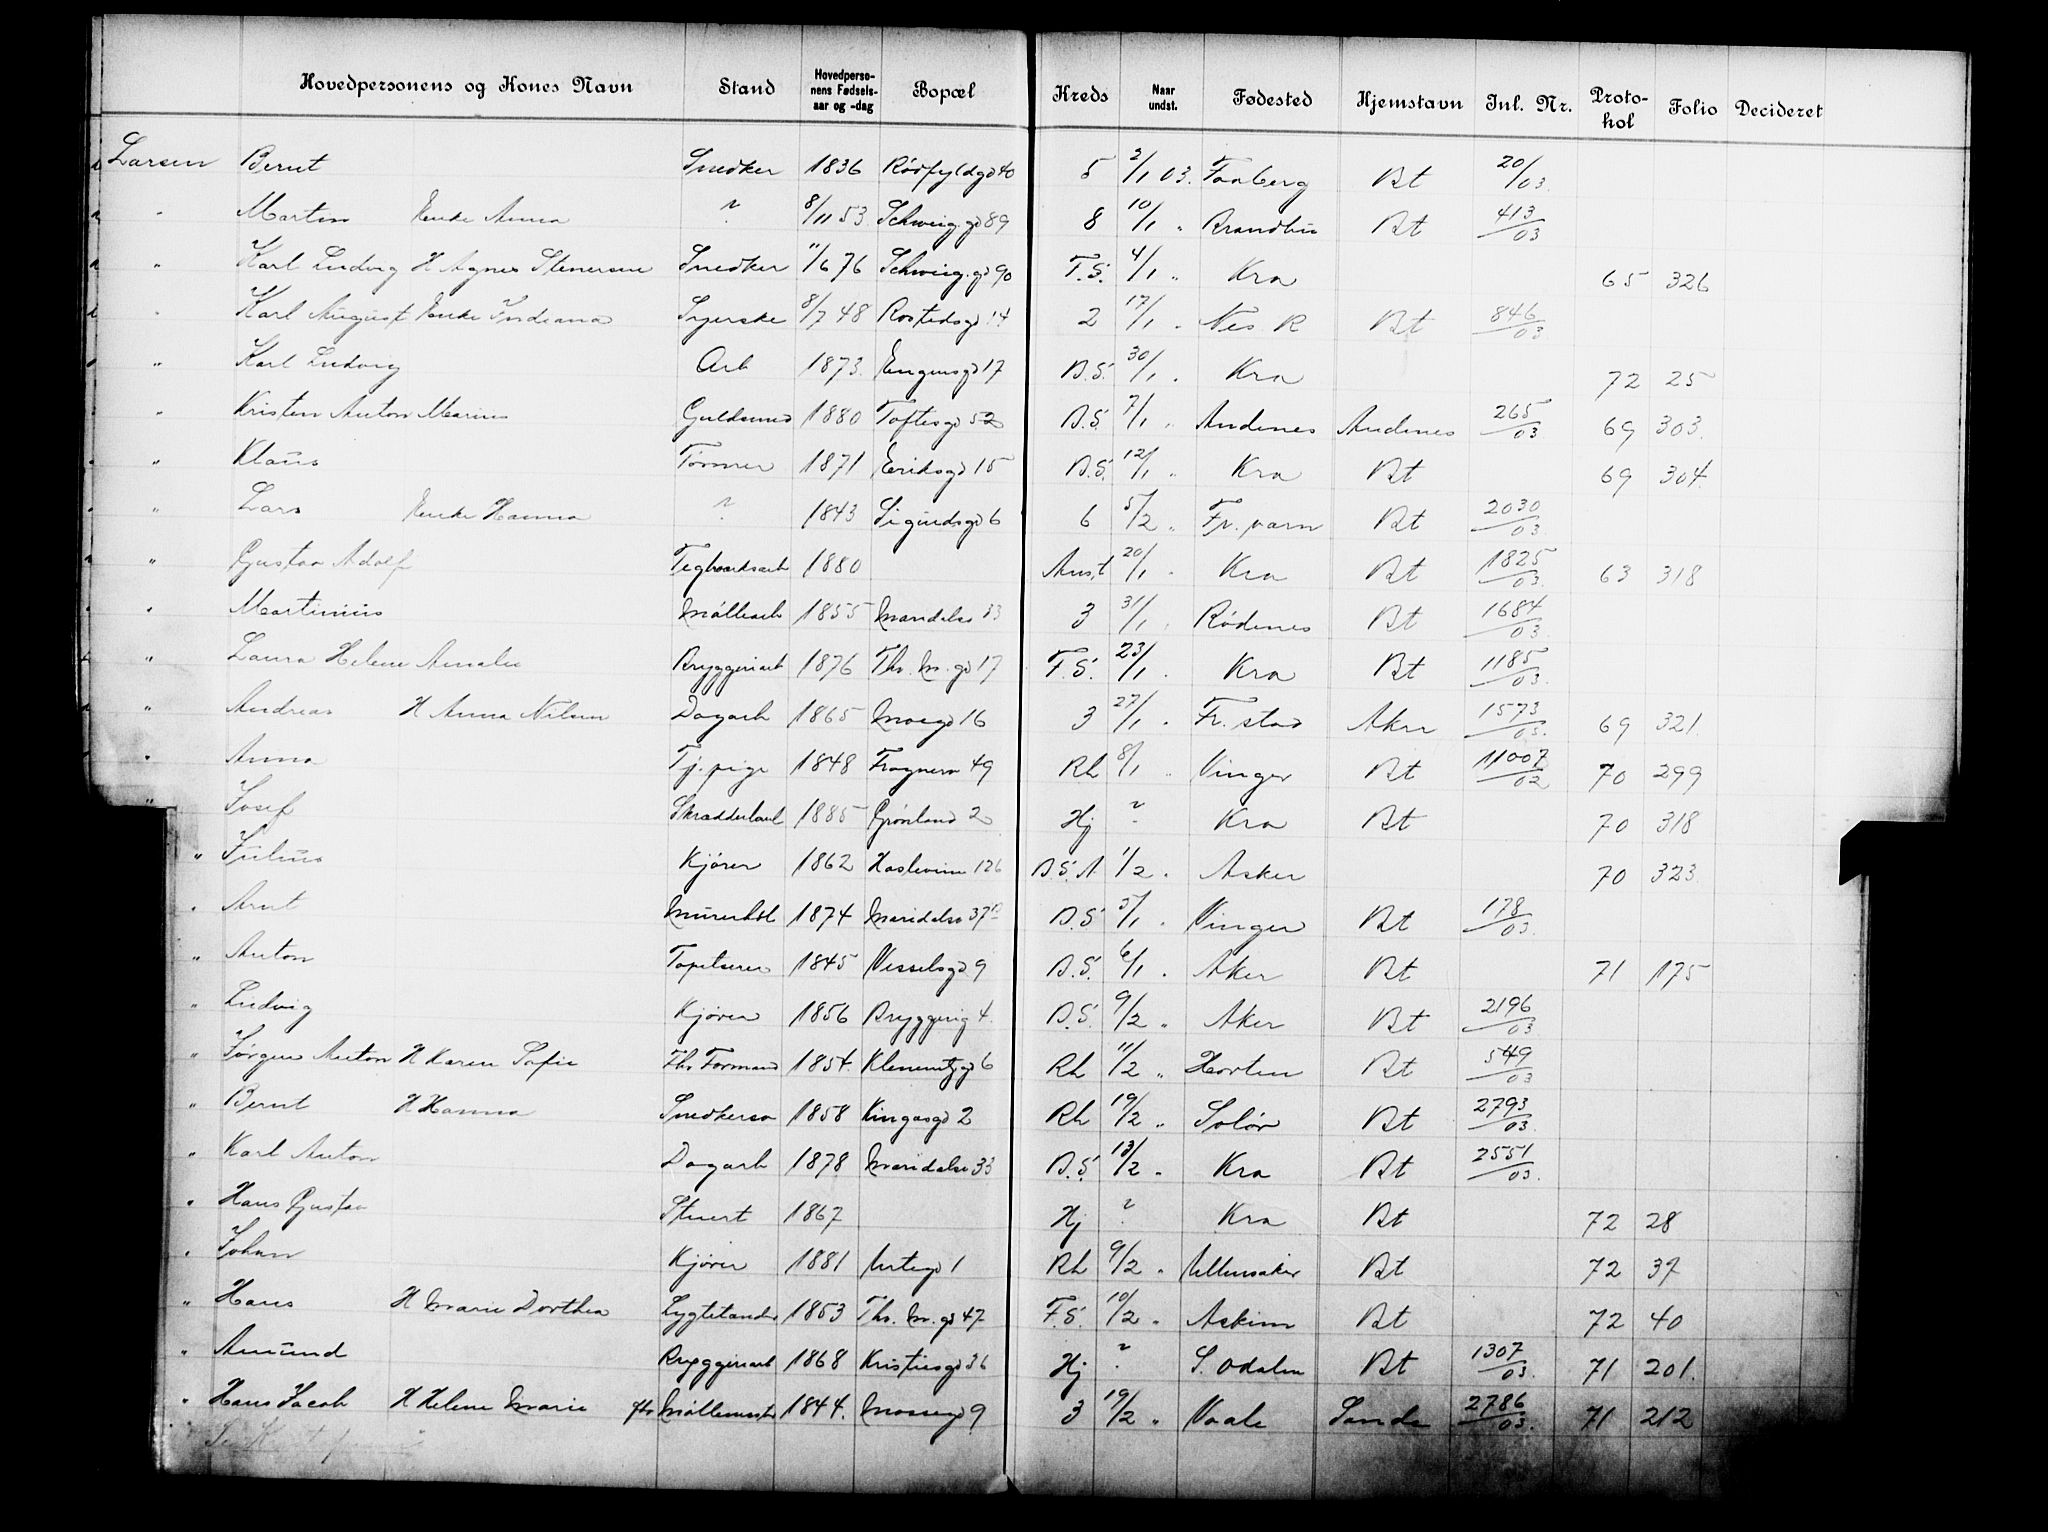 Hovedpersonens og Kones Navn Stand Hovedpersonens Fødselsaar og -dag Bopæl Kreds Naar undst. Fødested Hjemstavn Inl. Nr. Protokol Folio Decideret
Larsen Bernt Snedker 1836 Rødfyldgd 40 5 2/1 03. Faaberg Bt 20/03.
" Martin Enke Anna ? 8/11 53 Schweig.gd 89 8 10/1 " Brandbu Bt 413/03
" Karl Ludvig H Agnes Stenersen Snedker 11/6 76 Schweig.gd 90 F.S. 4/1 " Kra 65 326
" Karl August Enke Indiana Syerske 8/7 48 Rostedsgd 14 2 17/1 " Nes R Bt 846/03
" Karl Ludvig Arb 1873. Engensgd 17 B.S. 30/1 " Kra 72 25
" Kristen Anton Marius Guldsmed 1880 Toftesgd 52 B.S. 7/1 " Andenes Andenes 265/03 69 303.
" Klaus Tømmer 1871 Eriksgd 15 B.S. 12/1 " Kra Bt 69 304.
" Lars Enke Hanna ? 1843 Sigurdsgd 6 6 5/2 " Fr.værn Bt 2030/03
" Gustav Adolf Teglverksarb 1880 Anst 20/1 " Kra Bt 1825/03. 63 318
" Martinius Møllearb 1855 Maridalsv 33 3 31/1 " Rødenes Bt 1684/03.
" Laura Helene Amalie Bryggeriarb 1876 Th. M. gd 17 F.S. 23/1 " Kra Bt 1185/03.
" Andreas H Anna Nilsen Dagarb 1865 Mosgd 16 3 27/1 " Fr.stad Aker 1573/03. 69 321.
" Anna Tj.pige 1848 Frognerv 49 Rh 8/1 " Vinger Bt 11007/02 70 299
" Josef Skrædderlærl 1885 Grønland 2 Hj ? Kra Bt 70 318
" Julius Kjører 1862 Haslevein 126 B.S.A 1/2 " Asker 70 323.
" Arnt Murerhdl 1874 Maridalsv 37 B B.S. 5/1 " Vinger Bt 178/03.
" Anton Tapetserer 1845 Wesselsgd 9 B.S. 6/1 " Aker Bt 71 175
" Ludvig Kjører 1856 Bryggerig 4. B.S. 9/2 " Aker Bt 2196/03
" Jørgen Anton H Karen Sofie Fhv Formand 1854. Klemetsgd 6 Rh 11/2 " Horten Bt 549/03
" Bernt H Hanna Snedkersv 1858 Kingosgd 2 Rh 19/2 " Solør Bt 2793/03.
" Karl Anton Dagarb 1878 Maridalsv 33 B.S. 13/2 " Kra Bt 2551/03.
" Hans Gustav Stuert 1867 Hj ? Kra Bt 72 28
" Johan Kjører 1881 Urtegd 1 Rh 9/2 " Ullensaker Bt 72 37
" Hans H Marie Dorthea Lygtetænder 1853 Th. M. gd 47 F.S. 10/2 " Askim Bt 72 40
" Amund Bryggeriarb 1868 Kristiesgd 36 Hj ? S. Odalen Bt 1307/03. 71 201.
" Hans Jacob H Helene Marie fhv Møllemester 1844. Mossegd 9 3 19/2 " Vaale Sande 2786/03. 71 212